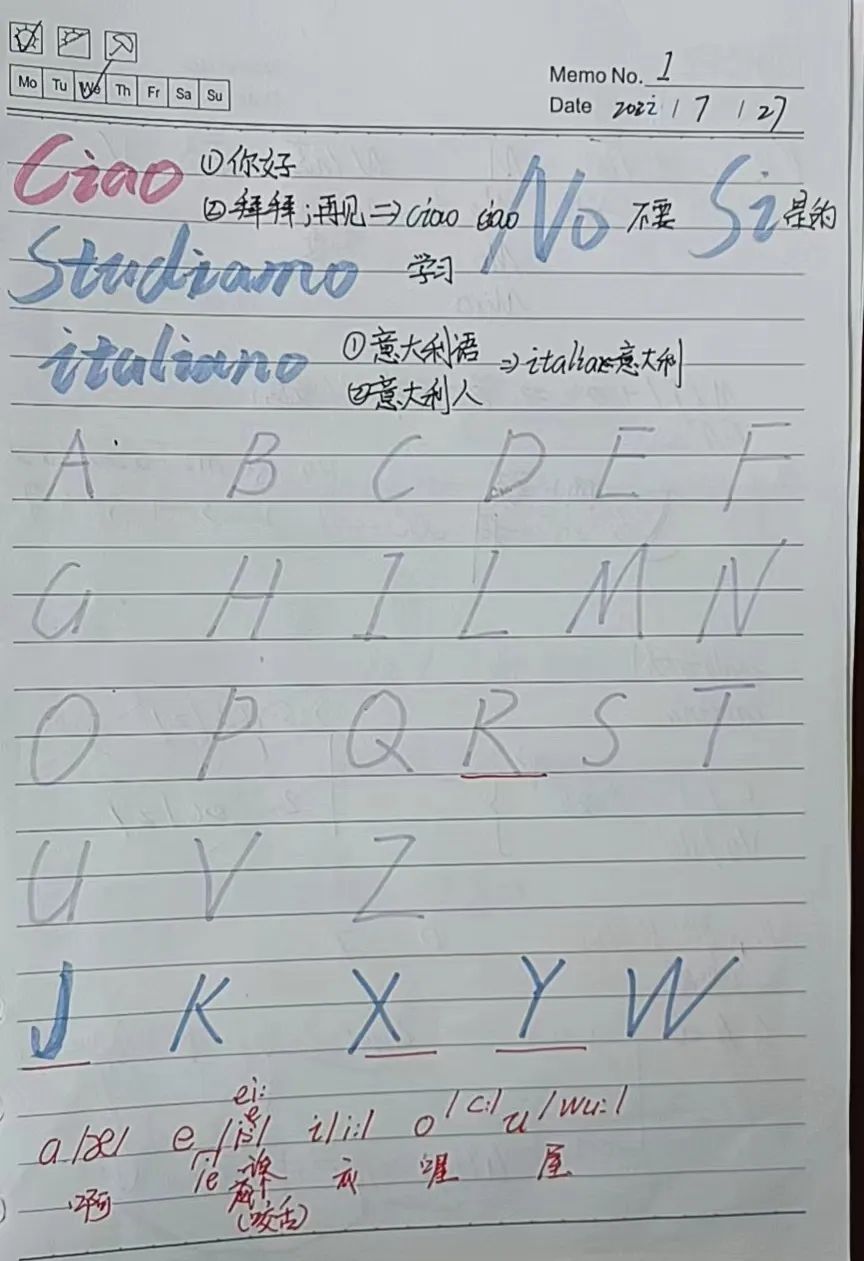 Mo Tu We Th Fr Sa Su
Memo No. 1
Date 2022 / 7 / 27
Ciao ①你好
②拜拜;再见⇒ciao ciao
No 不要 Si 是的
Studiamo 学习
italiano ①意大利语 ⇒italia意大利
②意大利人
A B C D E F
G H I L M N
O P Q R S T
U V Z
J K X Y W
ei:
a /æ/ e i /i:/ o u /wu:/
ie
啊 屋
(咬舌)